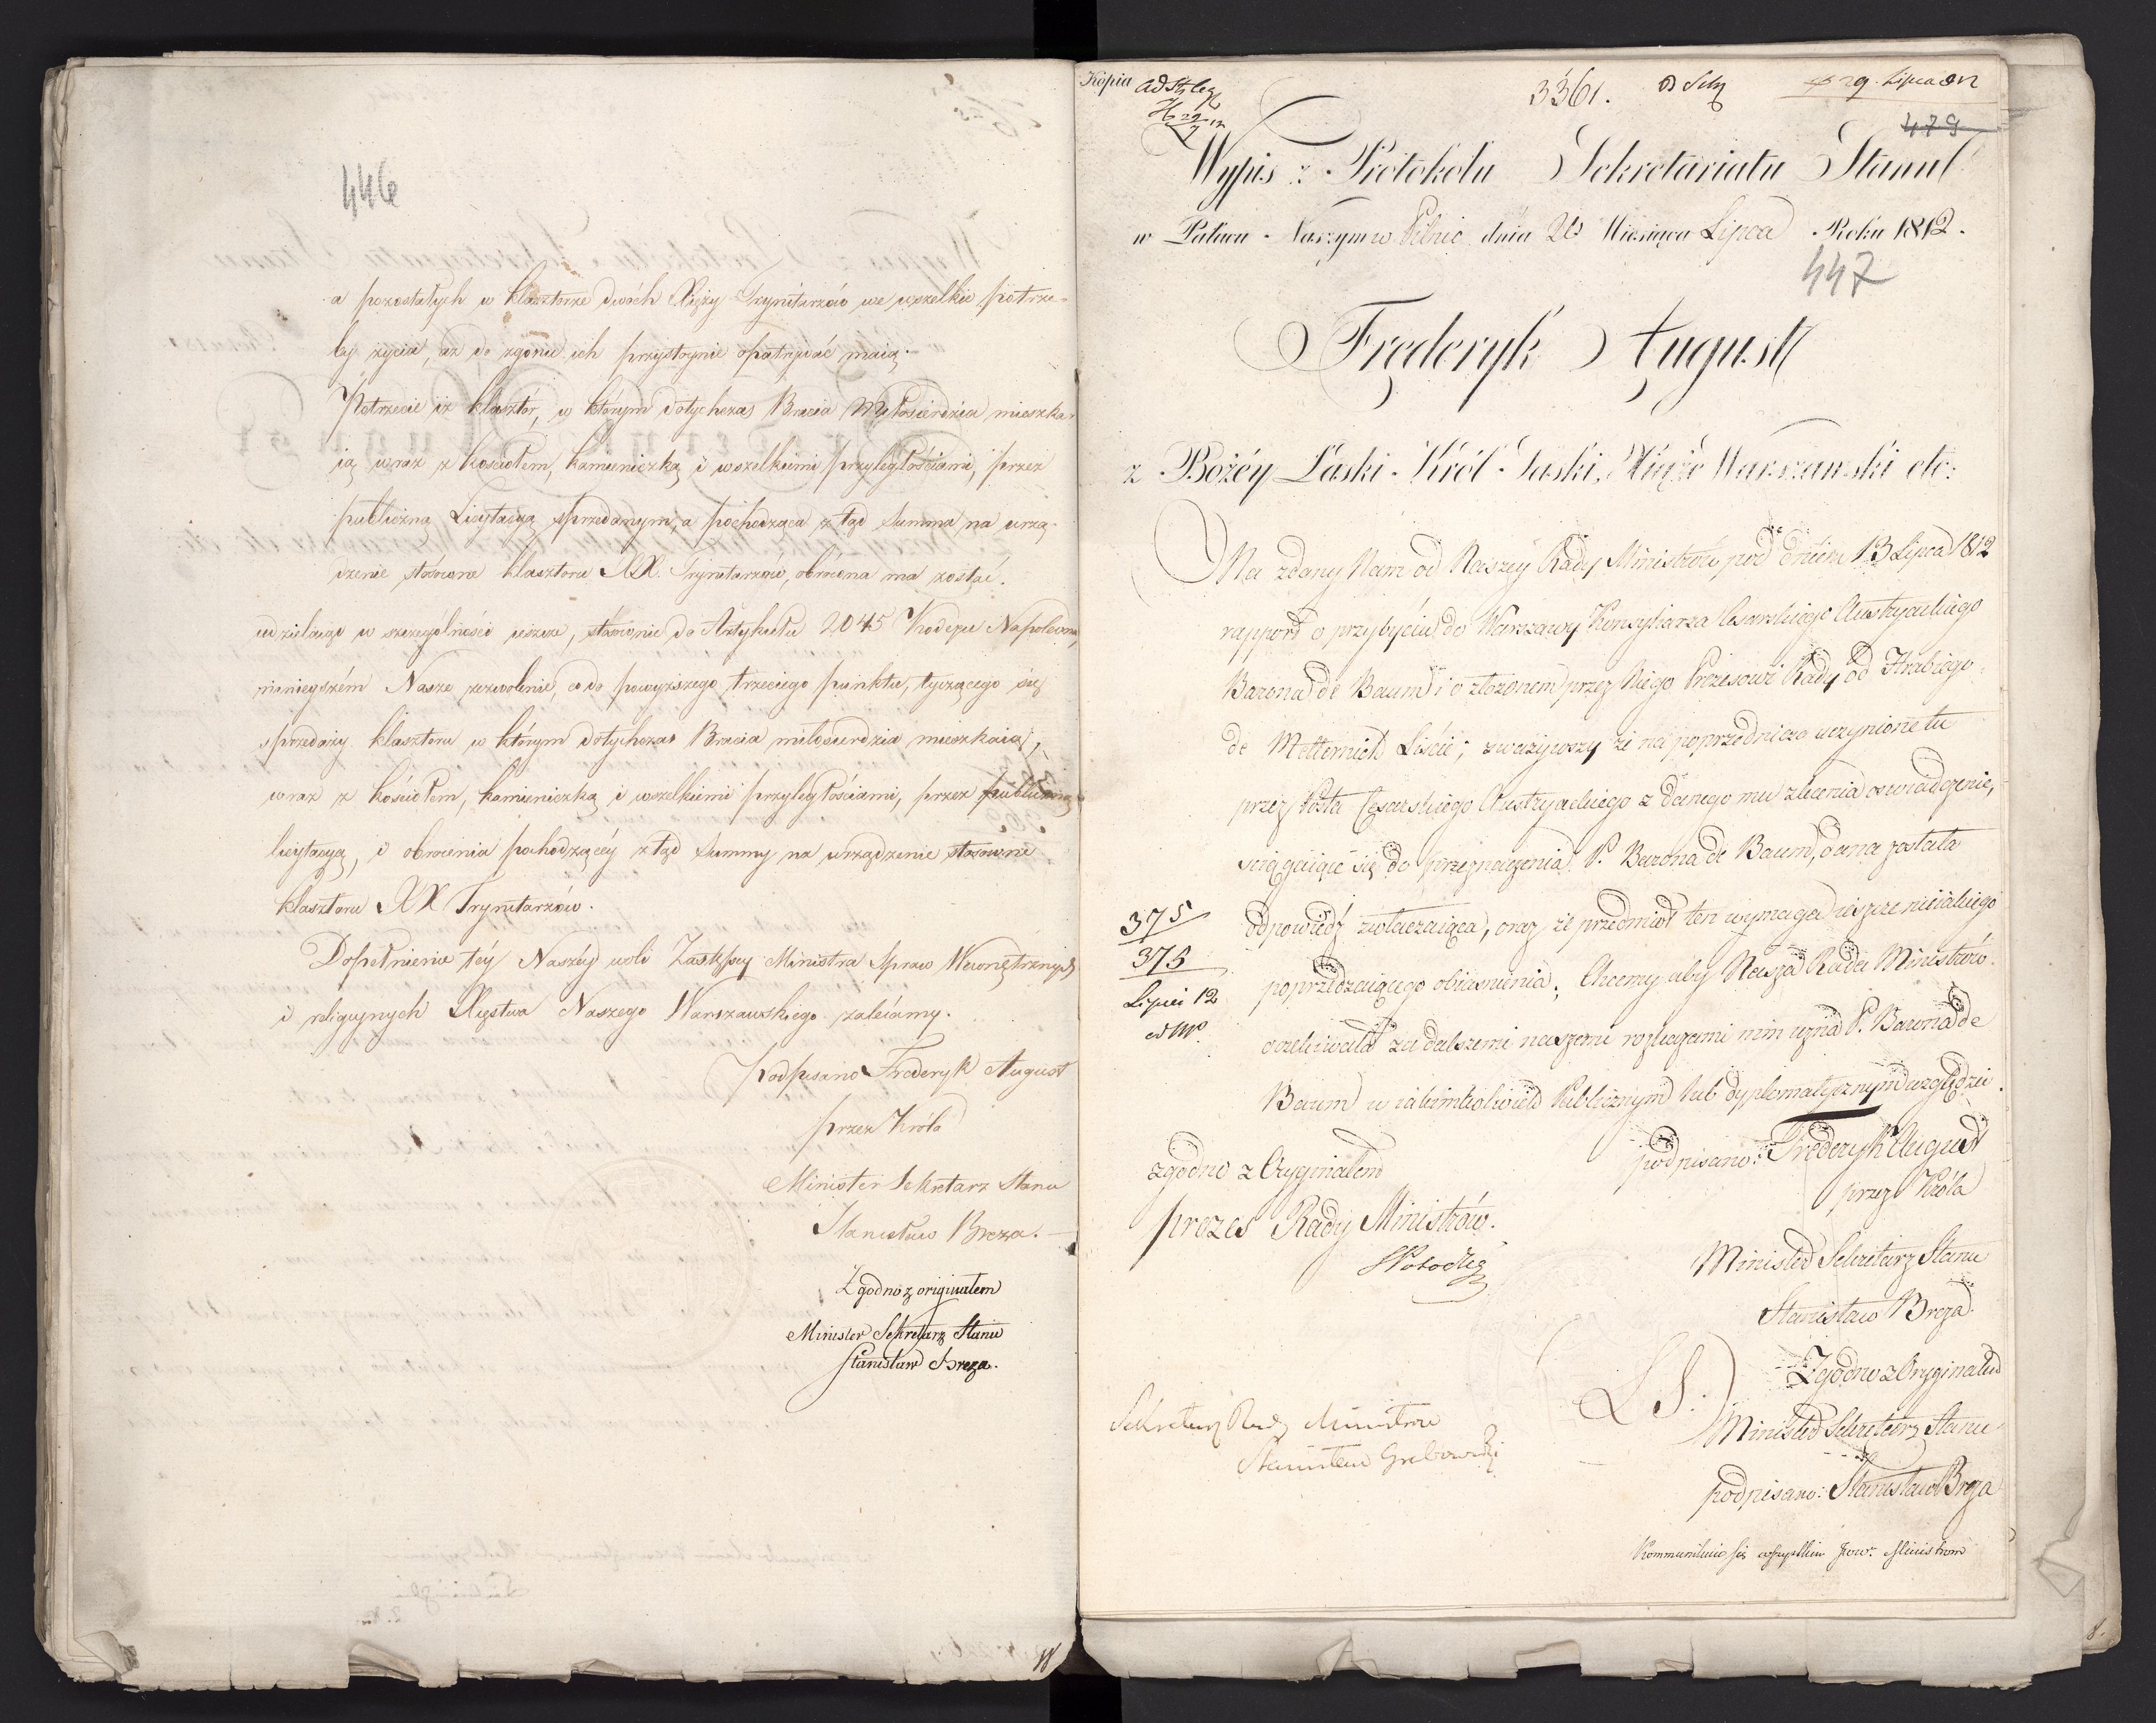 446
a pozostałych w klasztorze dwóch Xięży Trynitarzów we wszelkie potrze-
by życia, aż do zgonu ich przystoynie opatrywać maią.
Potrzecie iż klasztor, w którym dotychczas Bracia Miłosierdzia mieszka-
ią wraz z kościołem, kamieniczką i wszelkiemi przyległościami, przez
publiczną Licytacyą sprzedanym, a pochodząca z tąd summa na urzą-
dzenie stósowne klasztoru XX. Trynitarzów, obrócona ma zostać.
udzielaiąc w szczególności ieszcze, stósownie do Artykułu 2045 Kodexu Napoleona,
ninieyszém Nasze zezwolenie, co do powyższego trzeciego punktu, tyczącego się
sprzedaży klasztoru w którym dotychczas Bracia miłosierdzia mieszkaią,
wraz z kościołem, kamieniczką i wszelkiemi przyległościami, przez publiczną
licytacyą, i obrócenia pochodzącéy z tąd Summy na urządzenie stosowne
klasztoru XX Trynitarzów.
Dopełnienie téy Naszéy woli Zastępcy Ministra Spraw Wewnętrznych
i religiynych Xięstwa Naszego Warszawskiego zalécamy.
Podpisano Frederyk August
przez Króla
Minister Sekretarz Stanu
Stanisław Breza.
Zgodno z originałem
Minister Sekretarz Stanu
Stanisław Breza.
Kopia
3361.
29. Lipca 812
479
Wypis z Protokołu Sekretariatu Stanu
w Pałacu Naszym w Pilnic dnia 20 Miesiąca Lipca Roku 1812.
447
Fryderyk August
z Bożéy Łaski Król Saski, Xiążę Warszawski etc:
Na zdany Nam od Naszey Rady Ministrów pod dniem 13 Lipca 1812
rapport o przybyciu do Warszawy Konsyliarza Cesarskiego Austryackiego
Barona de Baum i o złożonem przez Niego Prezesowi Rady od Hrabiego
de Metternich Liście; zważywszy że na poprzedniczo uczynione tu
przez Posła Cesarskiego Austryackiego z danego mu zlecenia oświadczenie,
ściągaiące się do przeznaczenia P. Barona de Baum, dana została
odpowiedź zwłaczaiąca, oraz że przedmiot ten wymaga ieszcze nieiakiego
poprzedzaiącego obiasnienia; Chcemy aby Nasza Rada Ministrów
oczekiwała za dalszemi naszemi rozkazami nim uzna P. Barona de
Baum w iakimkolwiek Publicznym lub dyplomatycznym względzie.
375
375
Lipci 12
podpisano: Frederyk August
przez Króla
Minister Sekretarz Stanu
Stanisław Breza.
zgodno z Oryginałem
prezes Rady Ministrów.
(L S.)
Zgodno z Oryginałem
Minister Sekretarz Stanu
podpisano: Stanisław Breza
Sekretarz Rady Ministrów
Stanisław Grabowski
Kommunikuie się wszystkim Ministrom